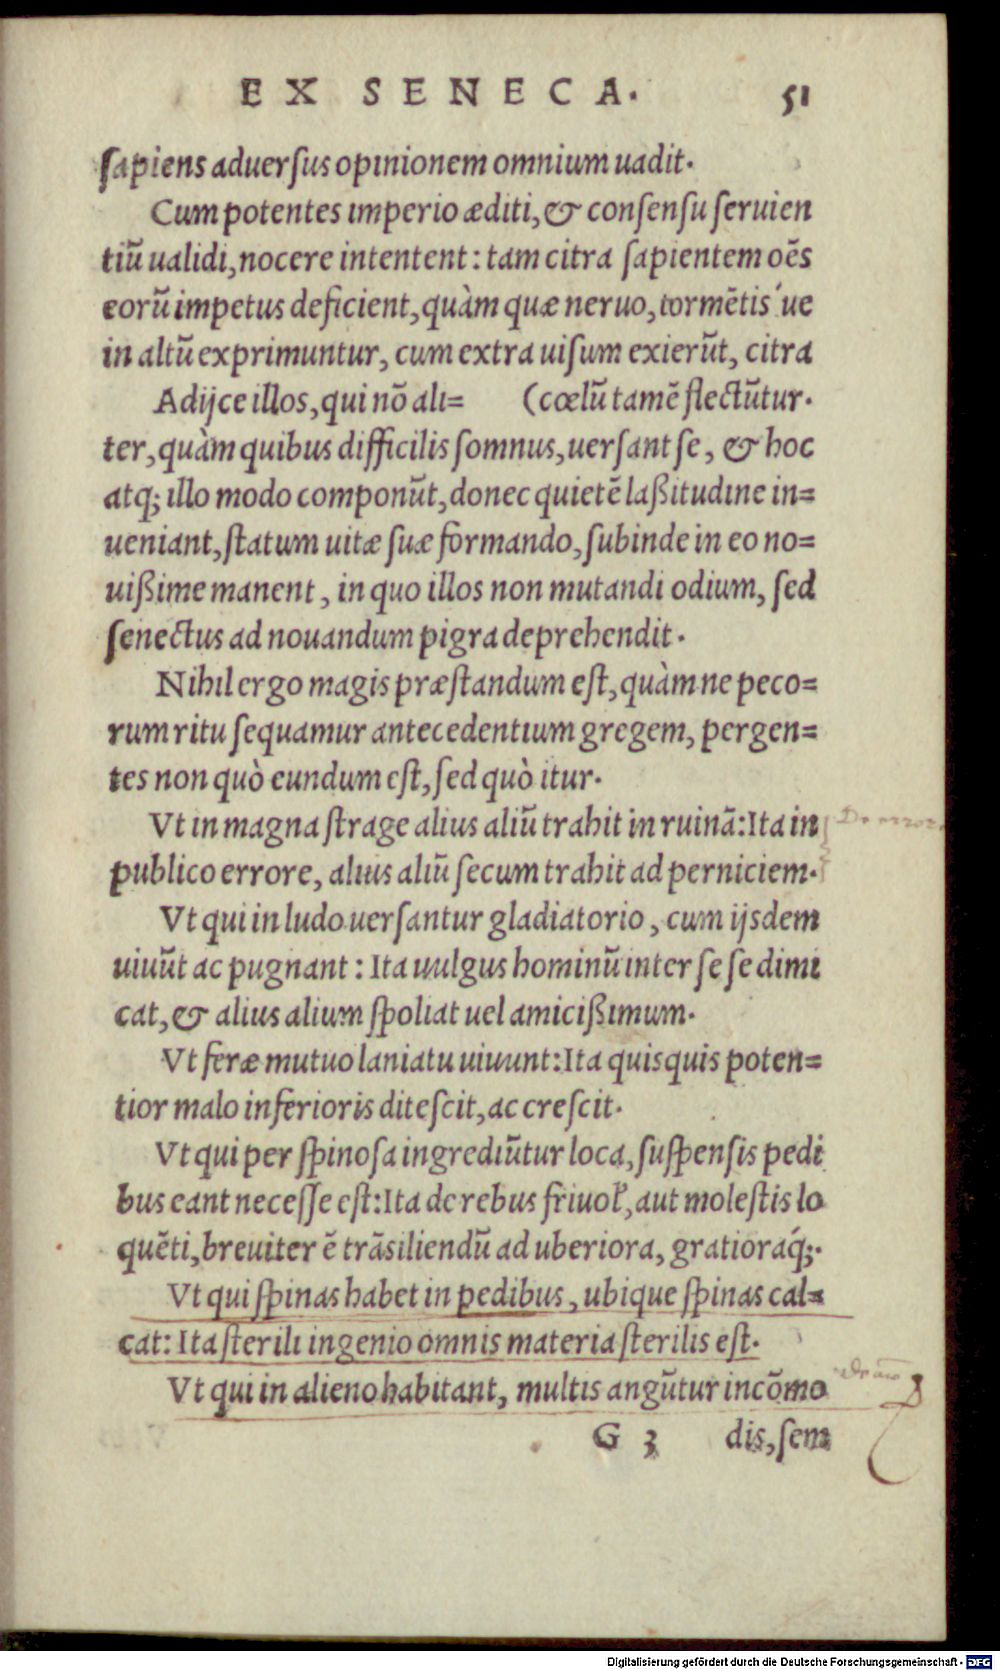 EX SENECA. 51
sapiens aduersus opinionem omnium uadit.
Cum potentes imperio æditi, & consensu seruien
tiũ ualidi, nocere intentent: tam citra sapientem oẽs
eorũ impetus deficient, quàm quæ neruo, tormẽtis´ue
in altũ exprimuntur, cum extra uisum exierũt, citra
Adijce illos, qui nõ ali= (cœlũ tamẽ flectũtur.
ter, quàm quibus difficilis somnus, uersant se, & hoc
atq; illo modo componũt, donec quietẽ laßitudine in=
ueniant, statum uitæ suæ formando, subinde in eo no=
uißime manent, in quo illos non mutandi odium, sed
senectus ad nouandum pigra deprehendit.
Nihil ergo magis præstandum est, quàm ne peco=
rum ritu sequamur antecedentium gregem, pergen=
tes non quò eundum est, sed quò itur.
Vt in magna strage alius aliũ trahit in ruinã: Ita in
De error
publico errore, alius aliũ secum trahit ad perniciem.
Vt qui in ludo uersantur gladiatorio, cum ijsdem
uiuũt ac pugnant: Ita uulgus hominũ inter se se dimi
cat, & alius alium spoliat uel amicißimum.
Vt feræ mutuo laniatu uiuunt: Ita quisquis poten=
tior malo inferioris ditescit, ac crescit.
Vt qui per spinosa ingrediũtur loca, suspensis pedi
bus eant necesse est: Ita de rebus friuolꝭ, aut molestis lo
quẽti, breuiter ẽ trãsiliendũ ad uberiora, gratioraq́;.
Vt qui spinas habet in pedibus, ubique spinas cal=
cat: Ita sterili ingenio omnis materia sterilis est.
Vt qui in alieno habitant, multis angũtur incõmo
G 3 dis, sem
Digitalisierung gefördert durch die Deutsche Forschungsgemeinschaft - DFG